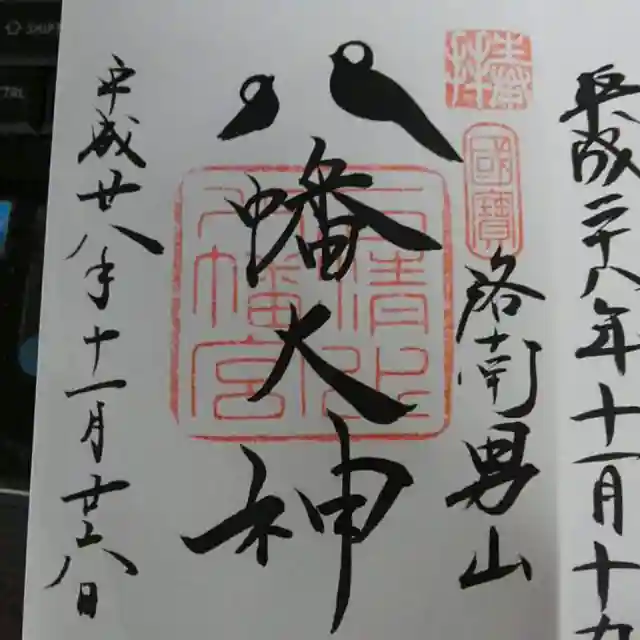 平成二十八年十一月十九
奉拝
國寶
洛南男山
石清水八幡宮
八幡大神
平成廿八年十一月廿六日